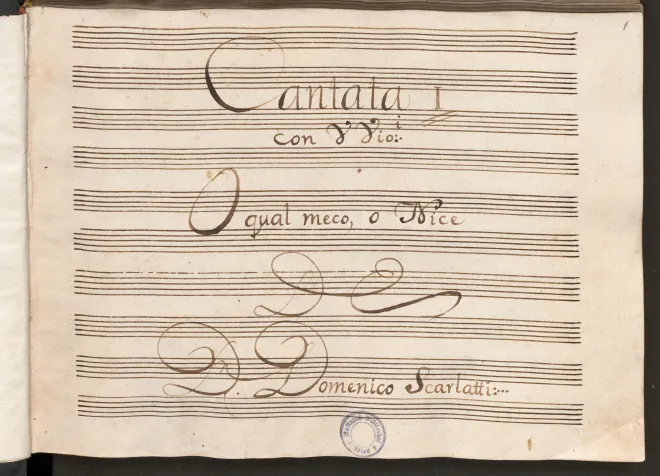 Cantata I
con V Vio:i
O qual meco, o Nice
Del
D. Domenico Scarlatti: